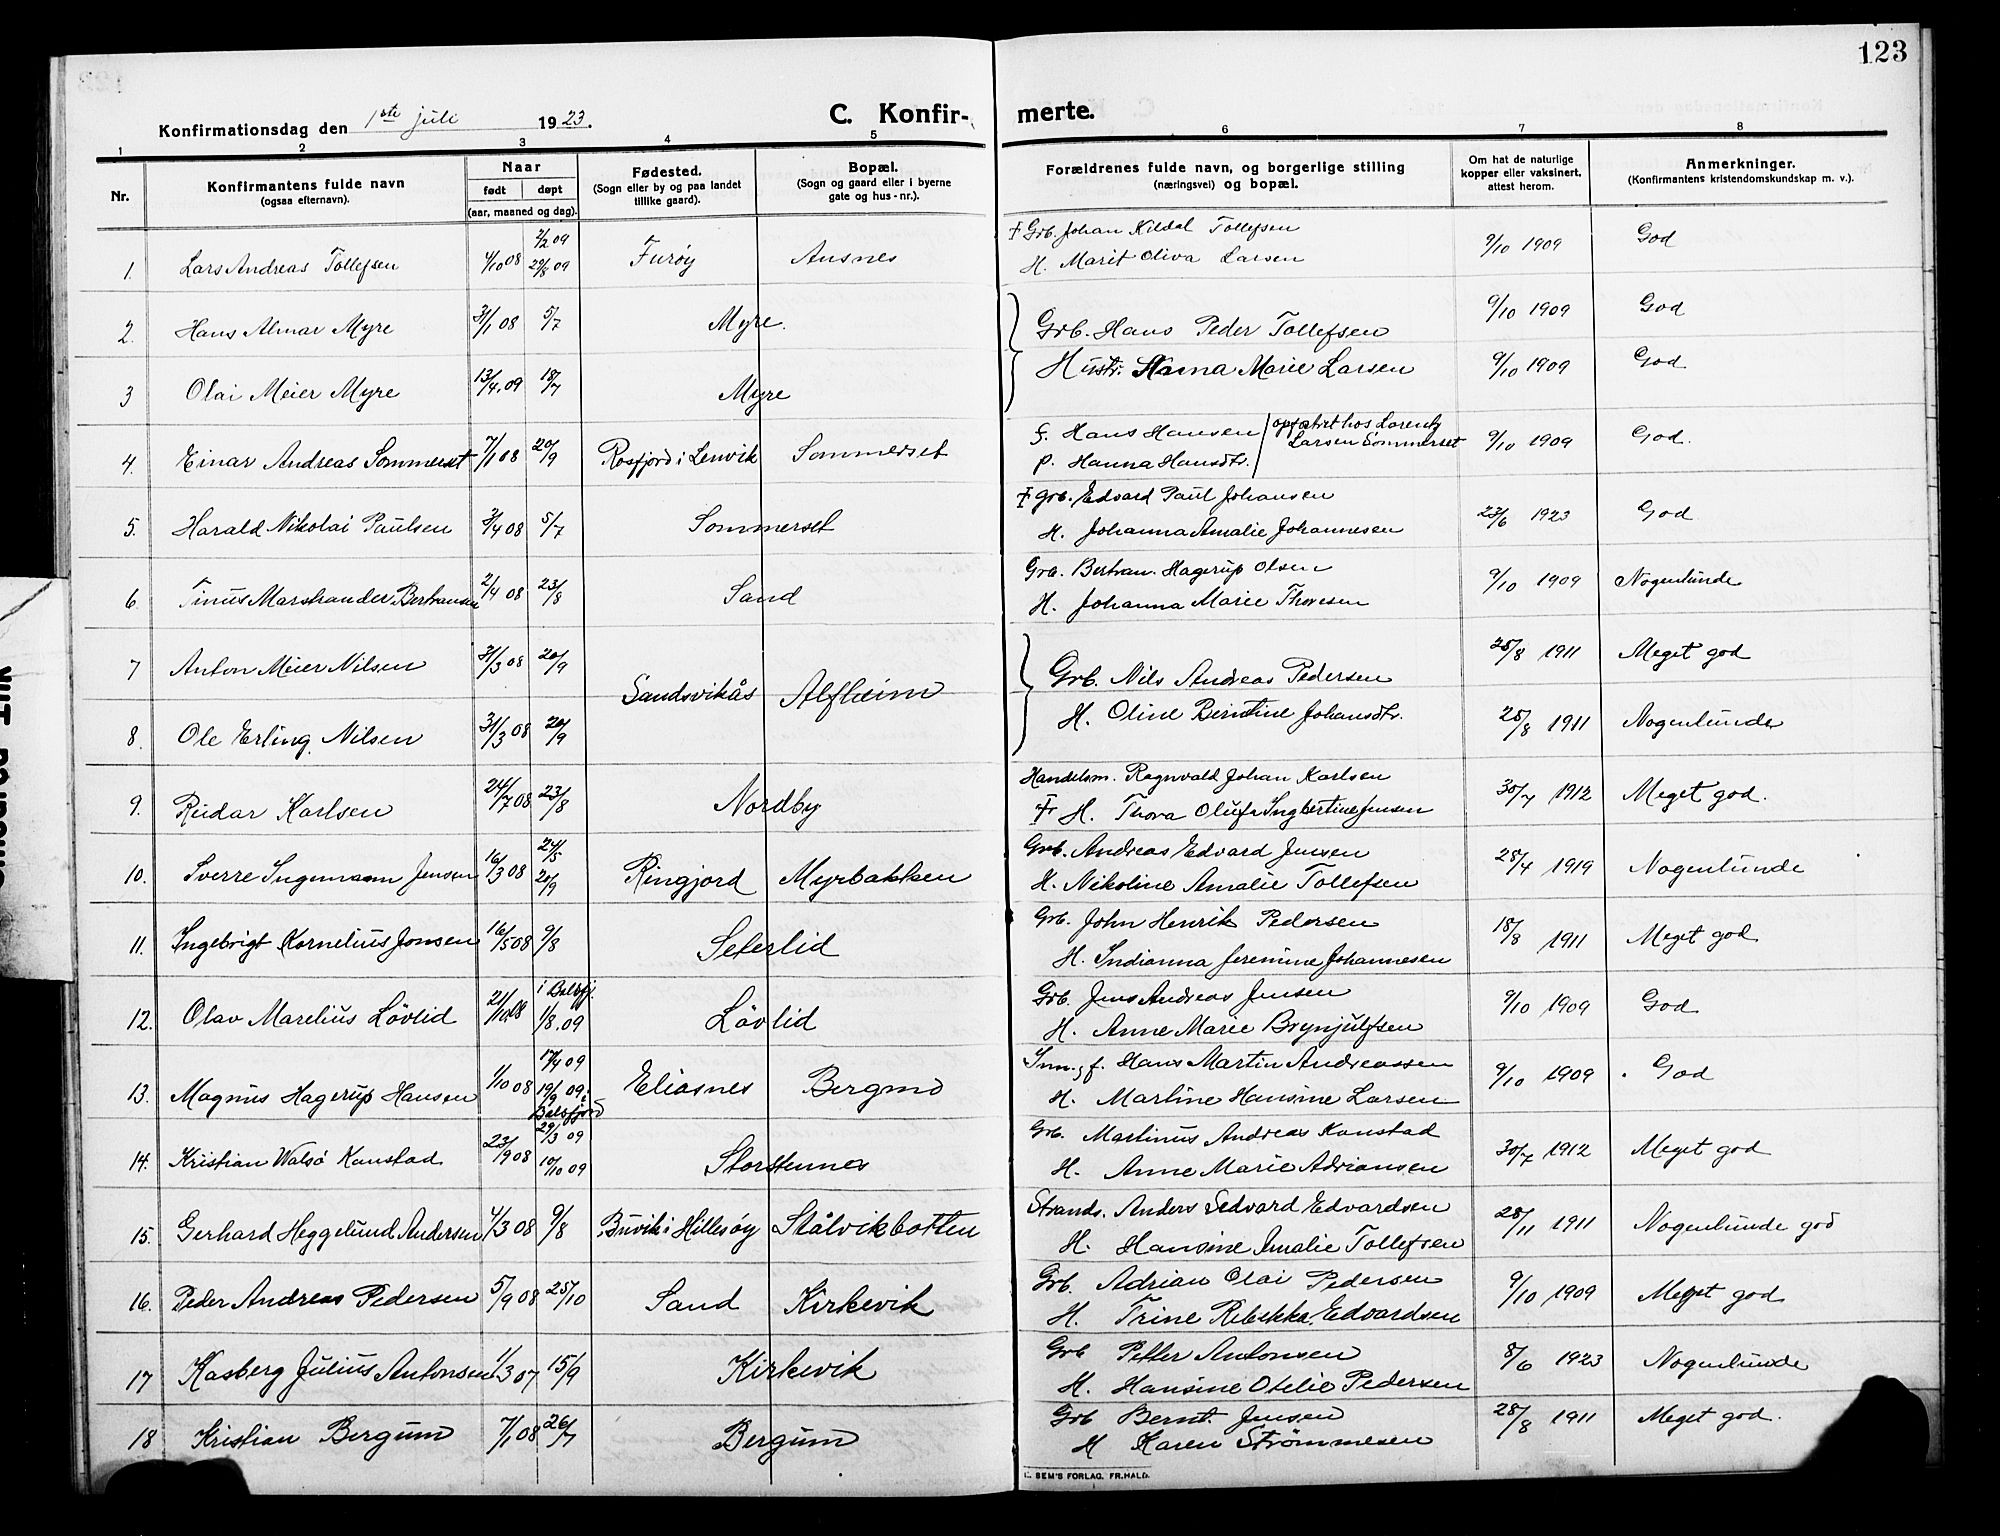 123
Konfirmationsdag den 1ste juli 1923. C. Konfirmerte.
1 2 3 4 5 6 7 8
Nr. Konfirmantens fulde navn (ogsaa efternavn). Naar født døpt (aar, maaned og dag). Fødested. (Sogn eller by og paa landet tillike gaard). Bopæl. (Sogn og gaard eller i byerne gate og hus-nr.). Forældrenes fulde navn, og borgerlige stilling (næringsvei) og bopæl. Om hat de naturlige kopper eller vaksinert, attest herom. Anmerkninger. (Konfirmantens kristendomskundskap m. v.).
1. Lars Andreas Tollefsen 4/10 08 2/2 09 29/8 09 Furøy Ausnes Grb. Johan Kildal Tollefsen H. Marit Oliva Larsen 9/10 1909 God
2. Hans Almar Myre 31/1 08 5/7 Myre. Grb. Hans Peder Tollefsen 9/10 1909 God
3 Olai Meier Myre 13/4.09 18/7 Myre Hustr. Hanna Marie Larsen 9/10 1909 God
4. Einar Andreas Sommerset 7/1 08 20/9 Rosfjord i Lenvik Sommerset f. Hans Hansen P. Hanna Hansdtr. opfødt hos Lorentz Larsen Sommerset 9/10 1909 God.
5. Harald Nikolai Paulsen 3/4 08 5/7 Sommerset Grb. Edvard Paul Johansen H. Johanna Amalie Johannesen 23/6 1923 God
6. Tinus Marstrander Bertransen 2/4 08 23/8 Sand Grb. Bertran. Hagerup Olsen H. Johanna Marie Thoresen 9/10 1909 Nogenlunde
7 Anton Meier Nilsen 31/3 08 20/9 Sandsvikås Alfheim Grb. Nils Andreas Pedersen 25/8 1911 Meget god
8. Ole Erling Nilsen 31/3 08 20/9 H. Oline Berntine Johansdtr. 25/8 1911 Nogenlunde
9. Reidar Karlsen 24/7 08 23/8 Nordby Handelsm. Ragnvald Johan Karlsen H. Thora Olufa Ingbertine Jensen 30/7 1912 Meget god.
10. Sverre Ingemann Jensen 16/3 08 24/5 20/9 Ringjord Myrbakken Grb. Andreas Edvard Jensen H. Nikoline Amalie Tollefsen 25/4 1919 Nogenlunde
11. Ingebrigt Kornelius Jonsen 16/5 08 9/8 Seterlid Grb. John Henrik Pedersen H. Indianna Jeremine Johannesen 18/8 1911 Meget god
12. Olav Marelius Lövlid 21/10 08 i Balsfj. 1/8.09 Lövlid Grb. Jens Andreas Jensen H. Anne Marie Brynjulfsen 9/10 1909 God
13. Magnus Hagerup Hansen 1/10 08 17/4 09 19/9 09 i Balsfjord Eliasnes Bergmo Inn. f. Hans Martin Andreassen H. Martine Hansine Larsen 9/10 1909 God
14. Kristian Walsö Kanstad 23/9 08 29/3 09 10/10 09 Storstennes Grb. Martinus Andreas Kanstad H. Anne Marie Adriansen 30/7 1912 Meget god
15. Gerhard Heggelund Andersen 4/3 08 9/8 Buvik i Hillesøy Stålvikbotten Strands. Anders Sedvard Edvardsen H. Hansine Amalie Tollefsen 28/11 1911 Nogenlunde god
16. Peder Andreas Pedersen 5/9 08 25/10 Sand Kirkevik Grb. Adrian Olai Pedersen H. Trine Rebekka Edvardsen 9/10 1909 Meget god
17 Kasberg Julius Antonsen 1/3 07 15/9 Kirkevik Grb Petter Antonsen H. Hansine Otelie Pedersen 8/6 1923 Nogenlunde
18 Kristian Bergum 7/1 08 26/7 Bergum Grb Bernt Jensen H Karen Strømmesen 28/8 1911 Meget god.
SEM'S FORLAG. FR.HALD.